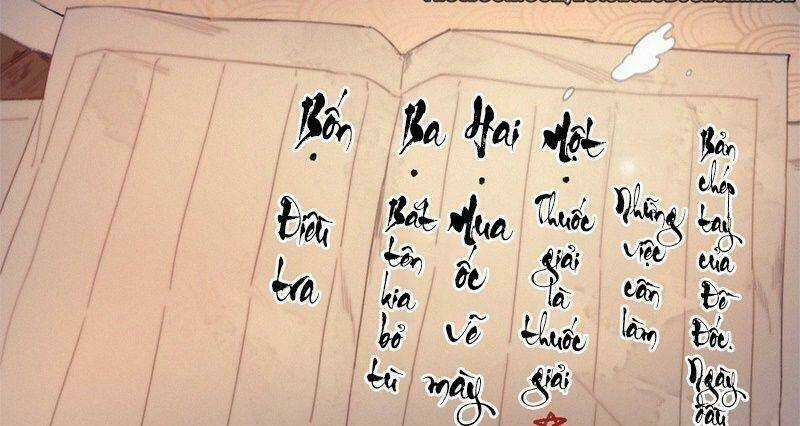 Bản chép tay của Đề Đốc. Ngày đầu
Những việc cần làm
Một. Thuốc giải là thuốc giải
Hai. Mua ốc vẽ mày
Ba. Bắt tên kia bỏ tù
Bốn. Điều tra